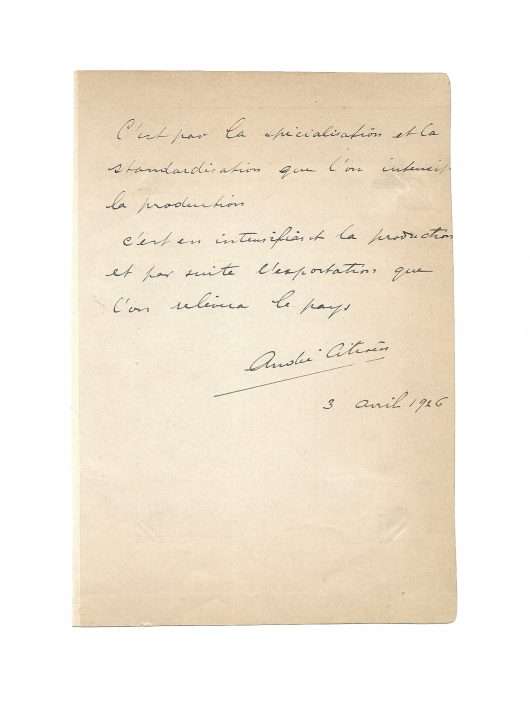 C'est par la spécialisation et la
standardisation que l'on intensif
la production
c'est en intensifiant la production
et par suite l'exportation que
l'on relèvera le pays
André Citroën
3 avril 1926